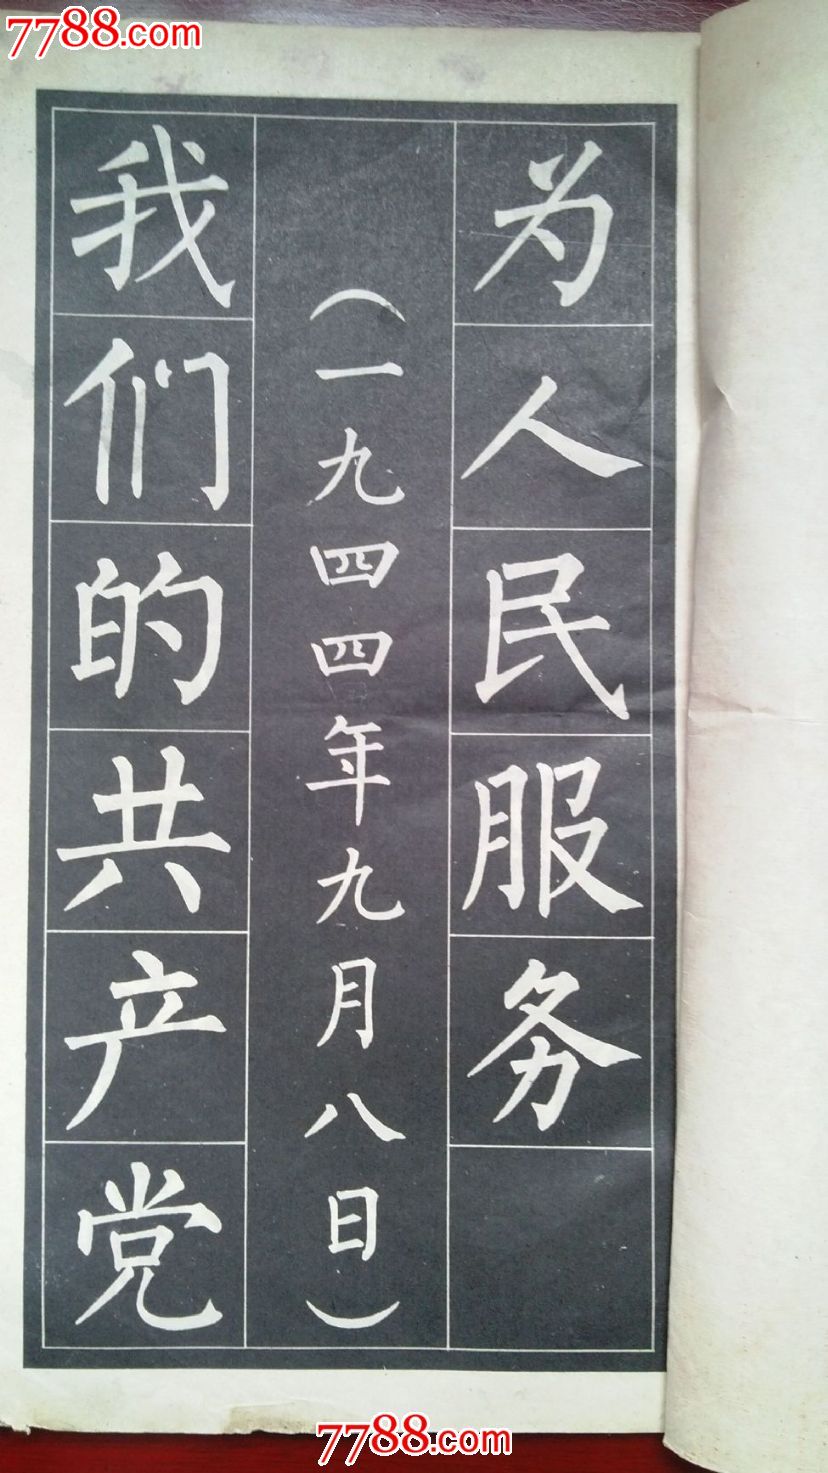 7788.com
为人民服务
（一九四四年九月八日）
我们的共产党
7788.com